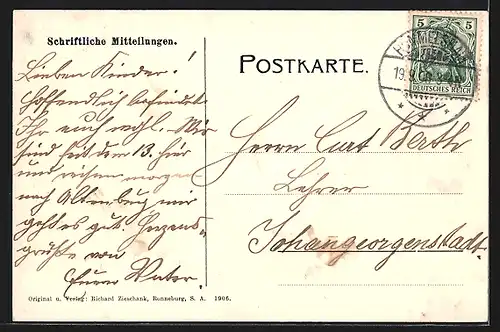 Schriftliche Mitteilungen.
POSTKARTE.
5 5
DEUTSCHES REICH
Lieben Kinder!
Hoffentlich befindet
Ihr euch wohl. Wir
sind seit dem 13. hier
und reisen morgen
nach Altenburg mir
geht es gut. Herzens-
grüße von
Eurer Vater.
Herrn Curt Barth
Lehrer
Johangeorgenstadt.
Original u. Verlag: Richard Zieschank, Ronneburg, S. A. 1906.